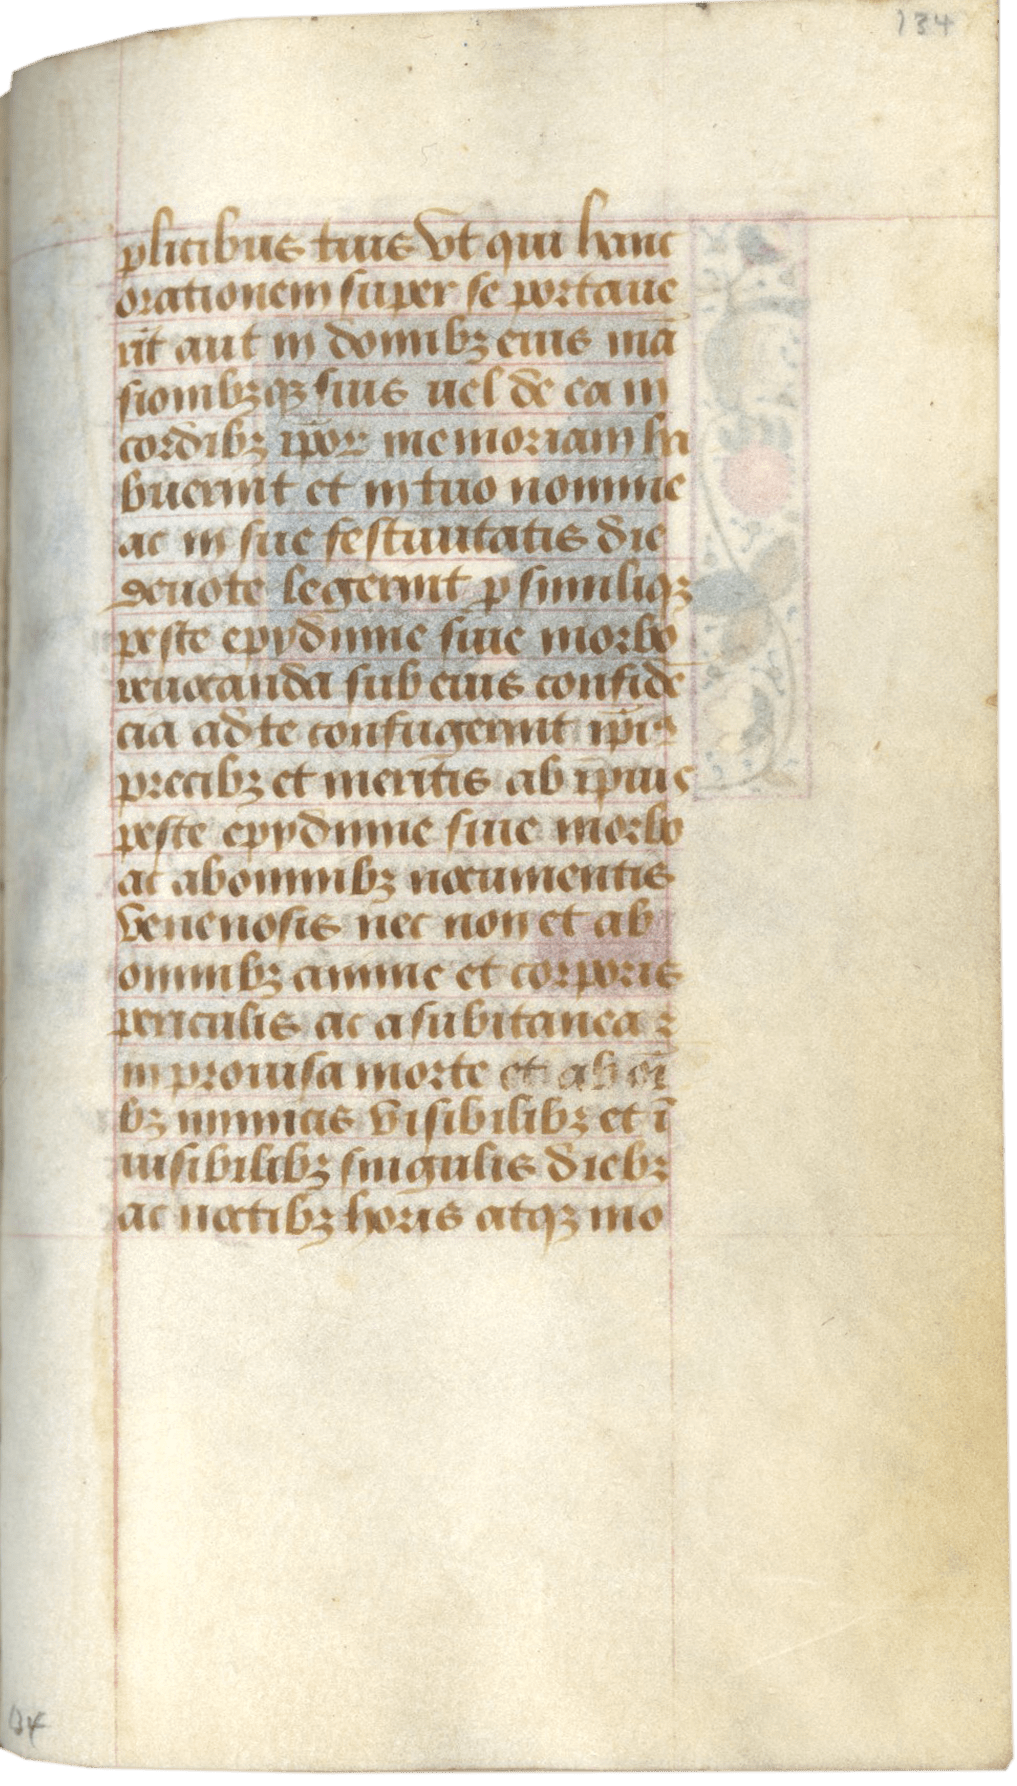 134
plicibus tuis Vt qui hanc
orationem super se portaue
rīt aut in domibꝫ eius mā
sionibꝫqꝫ suis uel de ea in
cordibꝫ ip̄oꝝ memoriam ha
buerint et in tuo nomine
ac in sue festiuitatis die
deuote legerint ꝑ similiqꝫ
peste epydimie siue morbo
reuocanda sub eius confidē
cia ad te confugerint ip̄iꝰ
precibꝫ et meritis ab ip̄ius
peste epydimie siue morbo
ac ab omnibꝫ nocumentis
venenosis nec non et ab
omnibꝫ anime et corporis
periculis ac a subitanea ꝛ
improuisa morte et ab oī
bꝫ inimicis visibilibꝫ et ī
uisibilibꝫ singulis diebꝫ
ac noctibꝫ horis atqꝫ mo
134